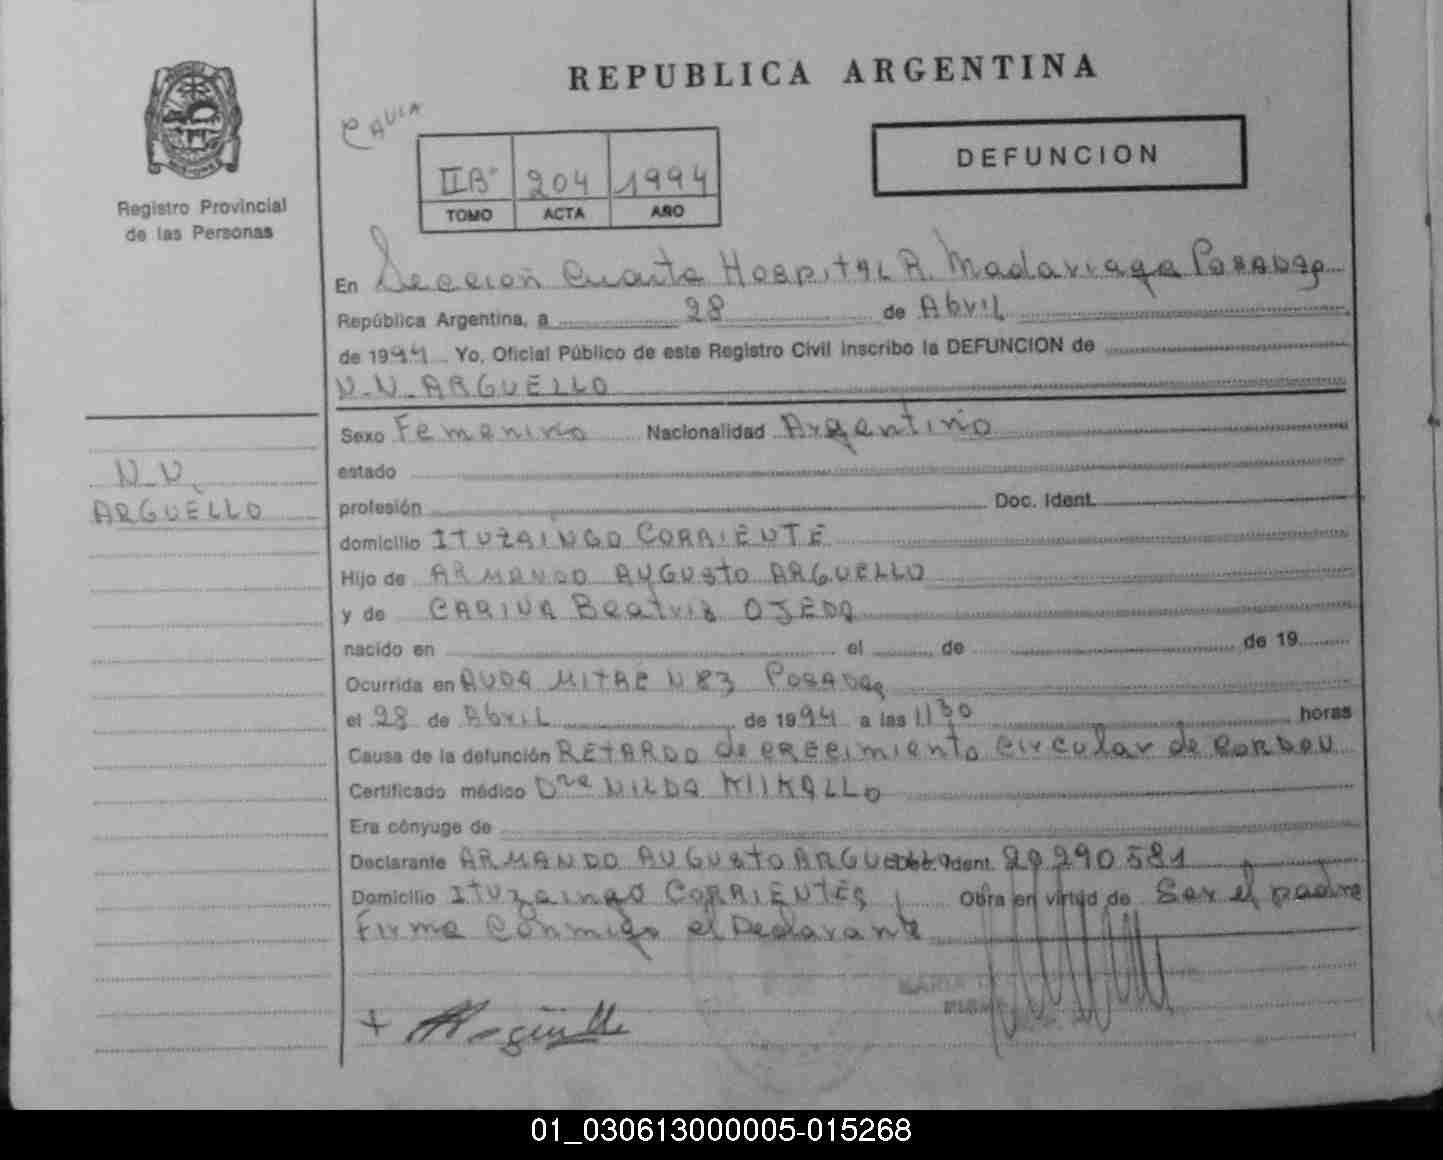 REPUBLICA ARGENTINA
Registro Provincial
de las Personas
IIBº 204 1994
TOMO ACTA AÑO
DEFUNCION
En Sección Cuarta Hospital R. Madariaga Posadas
República Argentina, a 28 de Abril
de 1994 Yo, Oficial Público de este Registro Civil inscribo la DEFUNCION de
N.N. ARGUELLO
N.N.
ARGUELLO
Sexo Femenino Nacionalidad Argentino
estado
profesión Doc. Ident.
domicilio ITUZAINGO CORRIENTE
Hijo de ARMANDO AUGUSTO ARGUELLO
y de CARINA Beatriz OJEDA
nacido en el de de 19
Ocurrida en AVDA MITRE N 83 POSADAS
el 28 de Abril de 1994 a las 1130 horas
Causa de la defunción RETARDO de crecimiento circular de cordon
Certificado médico Dra NILDA
Era cónyuge de
Declarante ARMANDO AUGUSTO ARGUELLO Ident. 20.290.581
Domicilio Ituzaingo CORRIENTES Obra en virtud de Ser el padre
Firma Conmigo el Declarante
+ Argüello
01_030613000005-015268